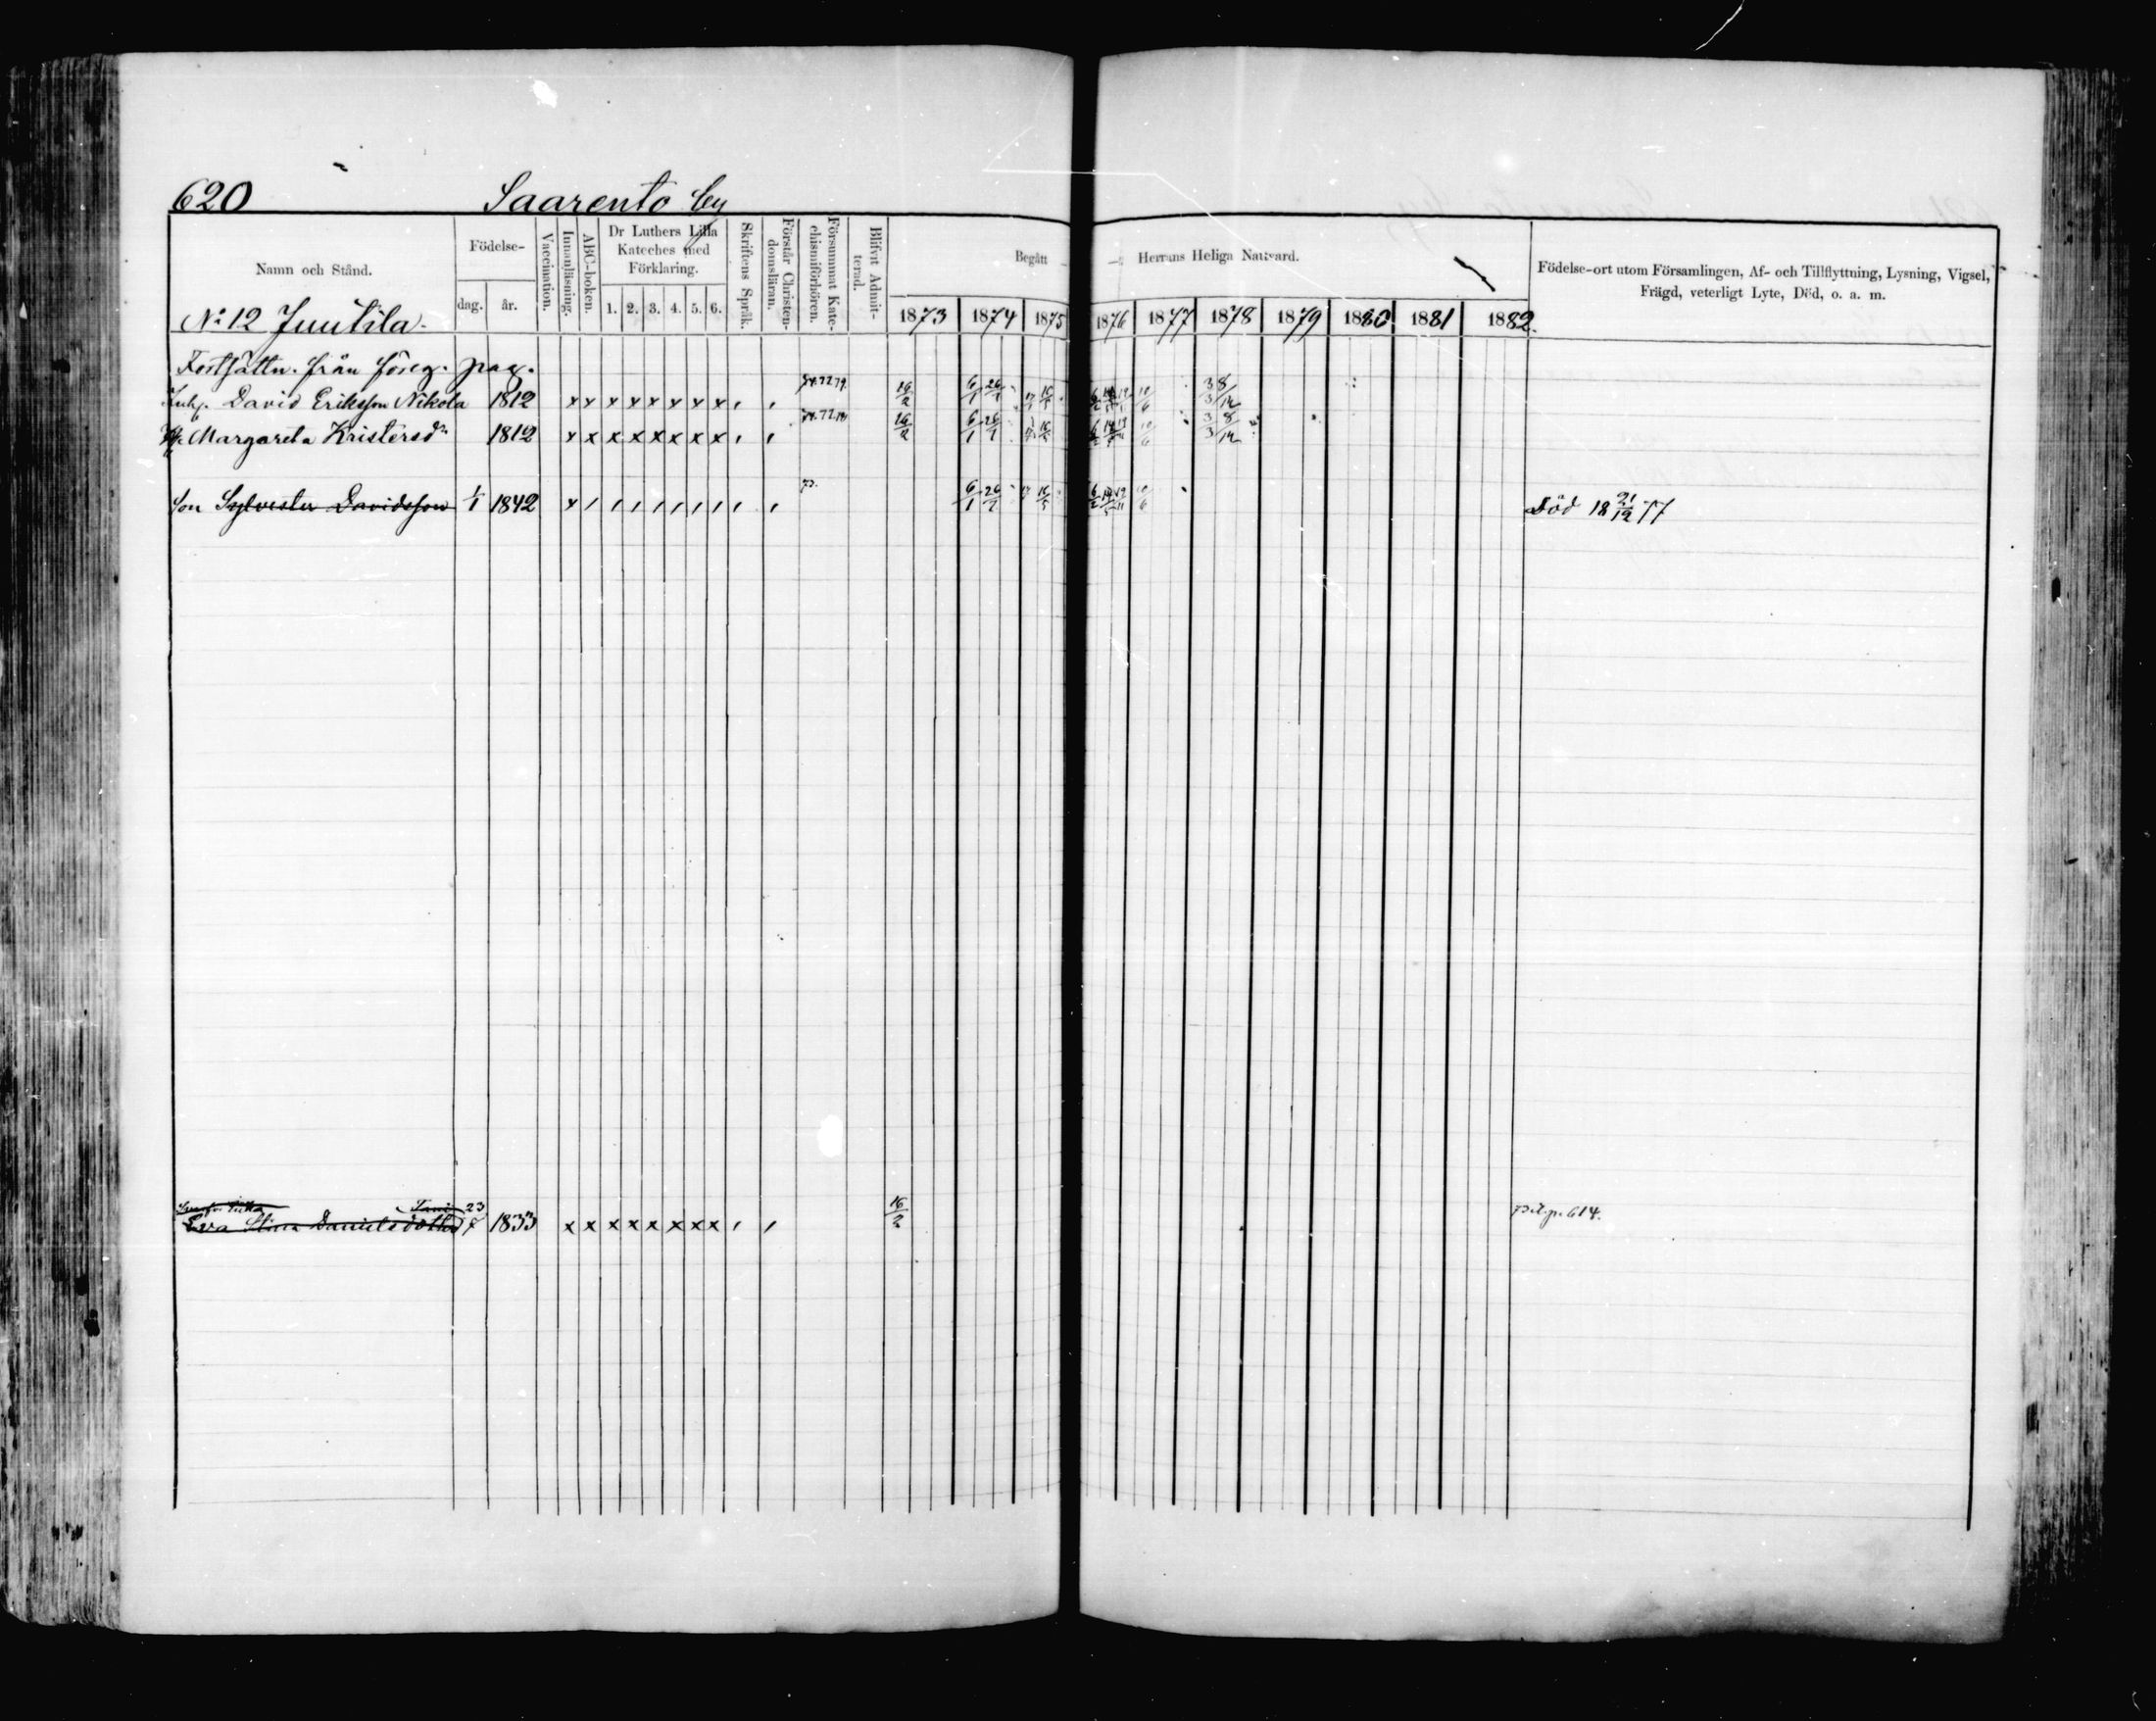 620 Saarento by
Namn och Stånd.
Födelse-
dag. år.
Vaccination.
Innanläsning.
ABC-boken.
Dr Luthers Lilla
Kateches med
Förklaring.
1. 2. 3. 4. 5. 6.
Skriftens Språk.
Förstår Christen-
domsläran.
Försummat Kate-
chismiförhören.
Blifvit Admit-
terad.
Begått Herrans Heliga Nattvard.
1873 1874 1875 1876 1877 1878 1879 1880 1881 1882.
Födelse-ort utom Församlingen, Af- och Tillflyttning, Lysning, Vigsel,
Frägd, veterligt Lyte, Död, o. a. m.
No 12 Juutila.
Fortsättn. från föreg. pag.
Inh. David Eriksson Nikola 1812 x x x x x x x x 74.77.79. 16/2 6/1 26/7 3/3 8/12
H. Margareta Kristersdr 1812 x x x x x x x x 74.77.79 16/2 6/1 26/7 3/3 8/12
Son Sylvester Davidsson 1/1 1842 x 73. 6/1 26/7 Död 18 21/12 77
Eva Stina Danielsdotter 23/7 1833 x x x x x x x x 16/2 p. 614.